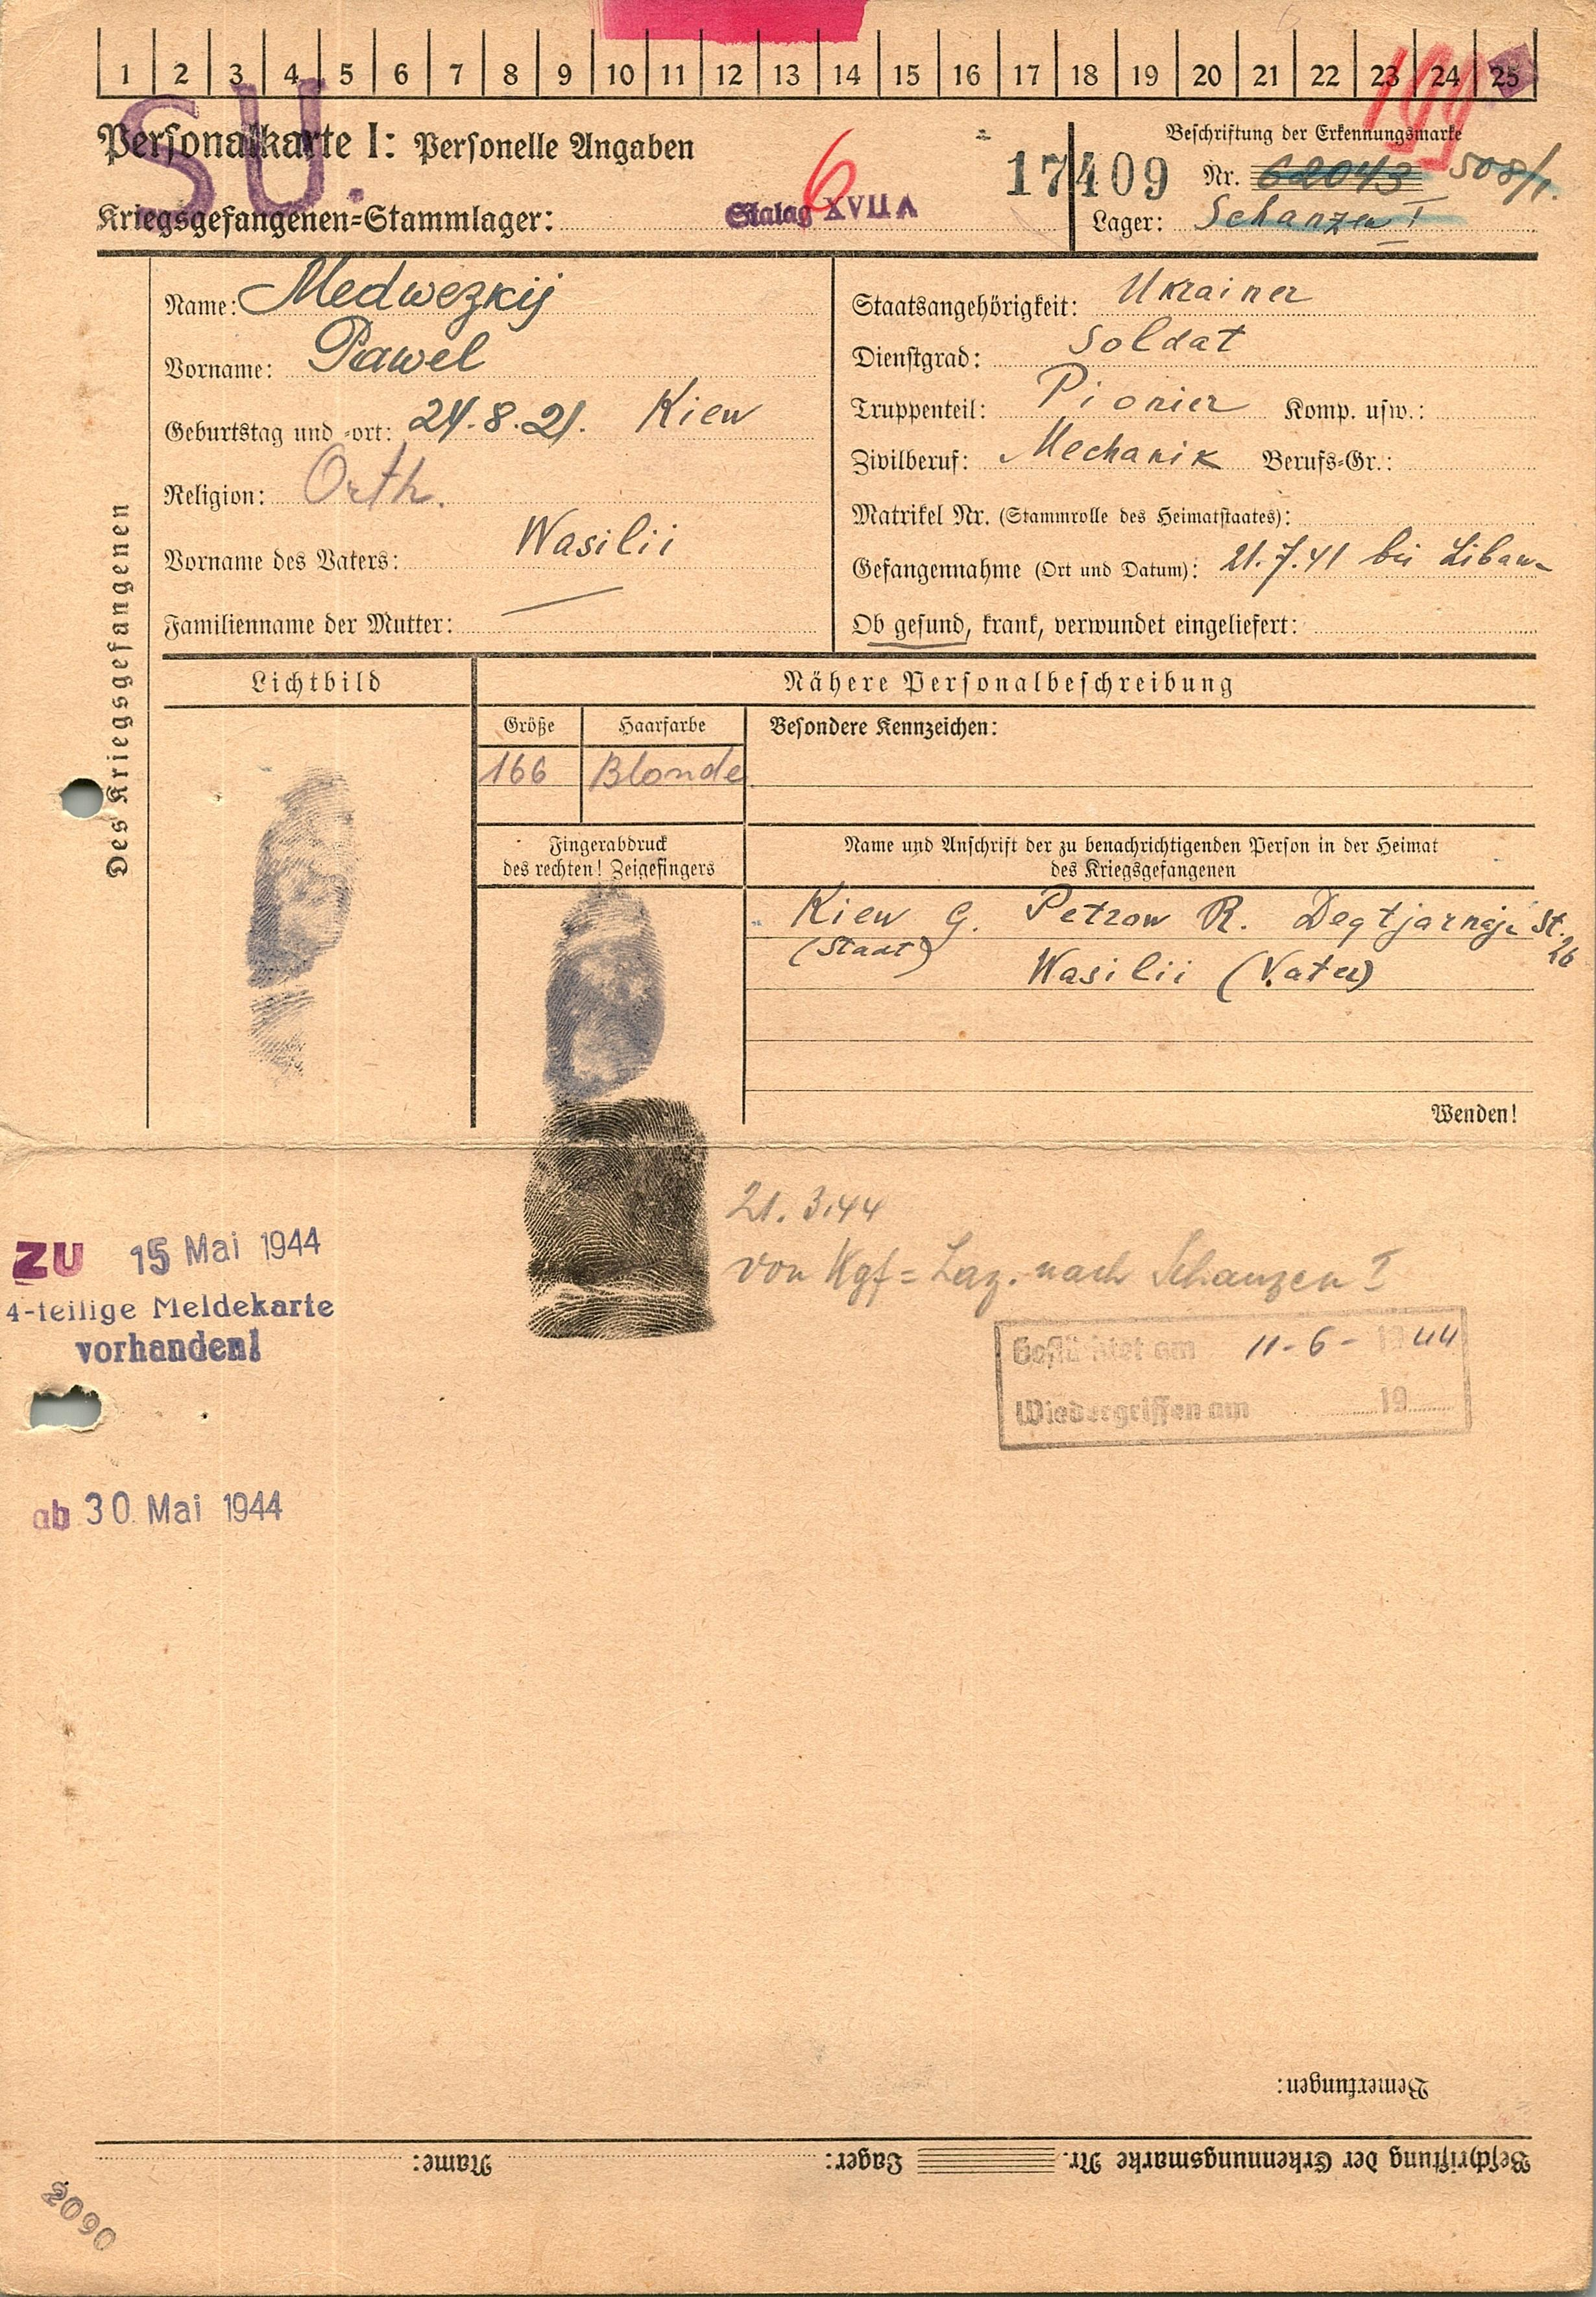 1 2 3 4 5 6 7 8 9 10 11 12 13 14 15 16 17 18 19 20 21 22 23 24 25
SU.
Personalkarte I: Personelle Angaben
6
17409
Beschriftung der Erkennungsmarke
Nr. 62043 508/1.
Kriegsgefangenen-Stammlager: Stalag XVII A
Lager: Schanzen I
Des Kriegsgefangenen
Name: Medwezkij
Vorname: Pawel
Geburtstag und -ort: 24.8.21. Kiew
Religion: Orth.
Vorname des Vaters: Wasilii
Familienname der Mutter: —
Staatsangehörigkeit: Ukrainer
Dienstgrad: Soldat
Truppenteil: Pionier Komp. usw.:
Zivilberuf: Mechanik Berufs-Gr.:
Matrikel Nr. (Stammrolle des Heimatstaates):
Gefangennahme (Ort und Datum): 21.7.41 bei Libau
Ob gesund, krank, verwundet eingeliefert:
Lichtbild
Nähere Personalbeschreibung
Größe Haarfarbe Besondere Kennzeichen:
166 Blonde
Fingerabdruck
des rechten! Zeigefingers
Name und Anschrift der zu benachrichtigenden Person in der Heimat
des Kriegsgefangenen
Kiew G. Petrow R. Degtjarnaja St. 26
(Staat) Wasilii (Vater)
Wenden!
21.3.44
von Kgf=Laz. nach Schanzen I
ZU 15 Mai 1944
4-teilige Meldekarte
vorhanden!
Geflüchtet am 11-6-1944
Wiederergriffen am 19
ab 30 Mai 1944
Bemerkungen:
Beschriftung der Erkennungsmarke Nr. Lager: Name:
2090